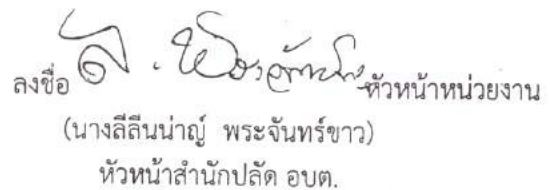 ลงชื่อ ลี. พระจันทร์ หัวหน้าหน่วยงาน
(นางลีลีนน่าญ์ พระจันทร์ขาว)
หัวหน้าสำนักปลัด อบต.